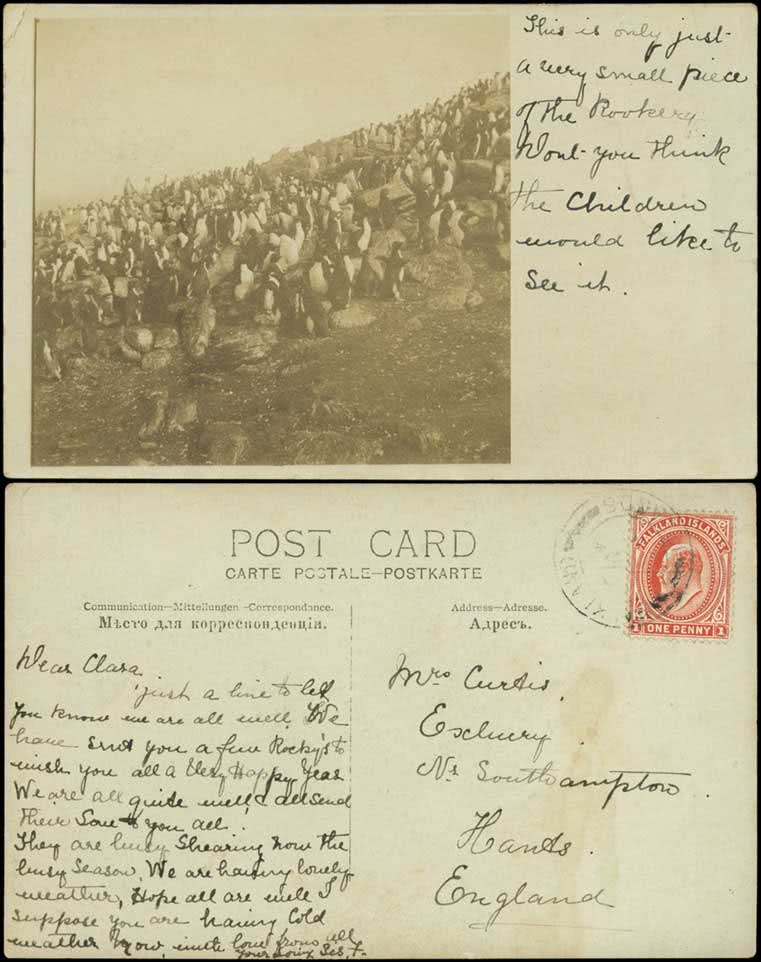 This is only just
a very small piece
of the Rookery
Wont you think
the Children
would like to
see it.
POST CARD
CARTE POSTALE—POSTKARTE
Communication—Mitteilungen-Correspondance.
Мѣсто для корреспонденціи.
Address—Adresse.
Адресъ.
FALKLAND ISLANDS
1 ONE PENNY 1
Dear Clara
just a line to let
you know we are all well. We
have sent you a few Rocky's to
wish you all a Very Happy Year
We are all quite well, & all send
their Love to you all.
They are busy Shearing now the
busy Season. We are having lovely
weather, Hope all are well I
suppose you are having Cold
weather now, with love from all
your Sis,
Mrs Curtis.
Exbury.
Nr Southampton.
Hants.
England